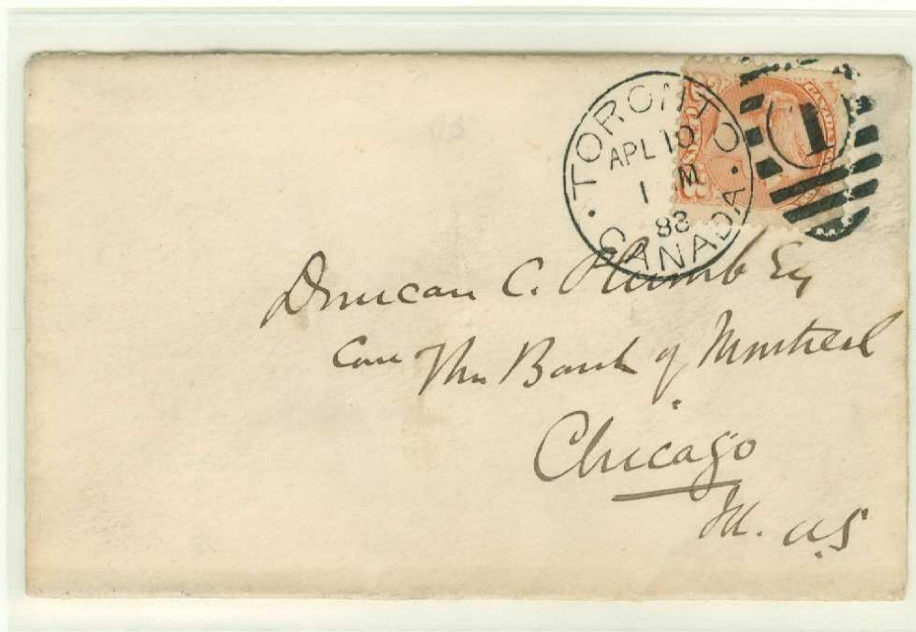 TORONTO
APL 10
1 M
88
CANADA
1
Duncan C. Plumb Esq
Care The Bank of Montreal
Chicago
Ill. U.S